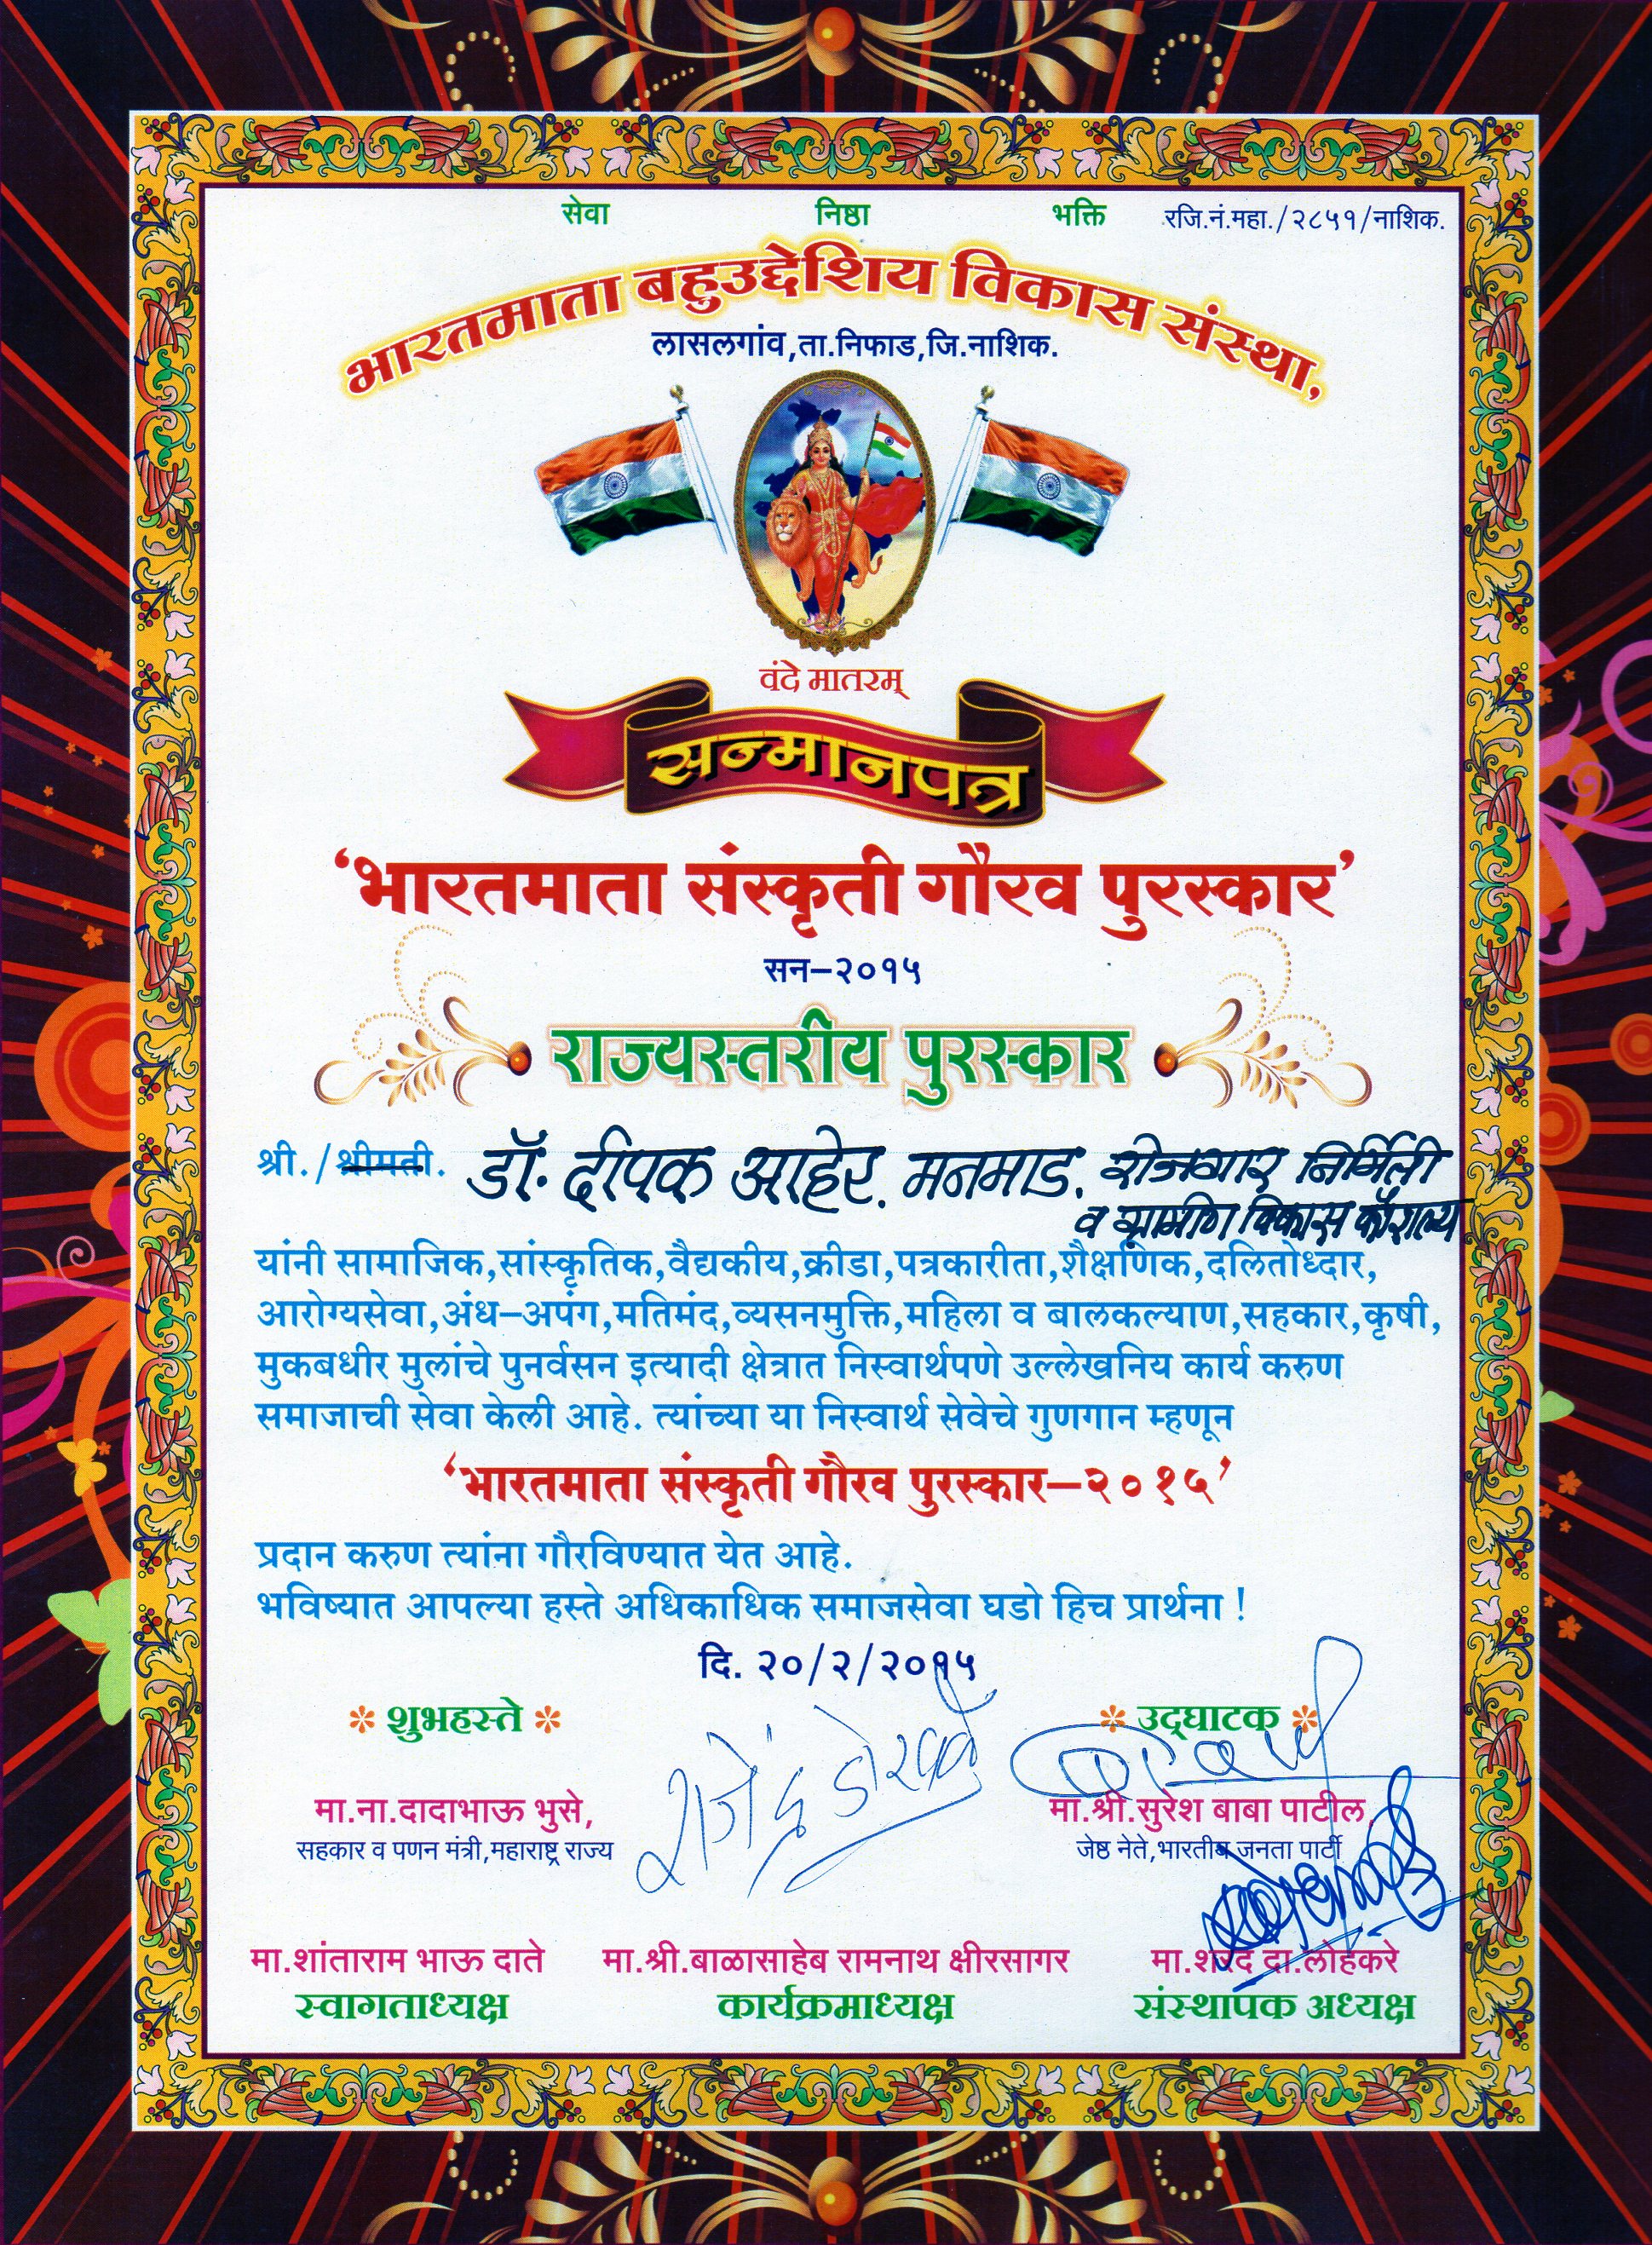 सेवा निष्ठा भक्ति रजि.नं.महा./२८५१/नाशिक.
भारतमाता बहुउद्देशिय विकास संस्था,
लासलगांव,ता.निफाड,जि.नाशिक.
वंदे मातरम्
सन्मानपत्र
‘भारतमाता संस्कृती गौरव पुरस्कार’
सन–२०१५
राज्यस्तरीय पुरस्कार
श्री./श्रीमती. डॉ. दीपक आहेर. मनमाड. रोजगार निर्मिती
व ग्रामीण विकास कौशल्य
यांनी सामाजिक,सांस्कृतिक,वैद्यकीय,क्रीडा,पत्रकारीता,शैक्षणिक,दलितोध्दार,
आरोग्यसेवा,अंध–अपंग,मतिमंद,व्यसनमुक्ति,महिला व बालकल्याण,सहकार,कृषी,
मुकबधीर मुलांचे पुनर्वसन इत्यादी क्षेत्रात निस्वार्थपणे उल्लेखनिय कार्य करुण
समाजाची सेवा केली आहे. त्यांच्या या निस्वार्थ सेवेचे गुणगान म्हणून
‘भारतमाता संस्कृती गौरव पुरस्कार–२०१५’
प्रदान करुण त्यांना गौरविण्यात येत आहे.
भविष्यात आपल्या हस्ते अधिकाधिक समाजसेवा घडो हिच प्रार्थना !
दि. २०/२/२०१५
* शुभहस्ते * * उद्‌घाटक *
मा.ना.दादाभाऊ भुसे, मा.श्री.सुरेश बाबा पाटील,
सहकार व पणन मंत्री,महाराष्ट्र राज्य जेष्ठ नेते,भारतीय जनता पार्टी
मा.शांताराम भाऊ दाते मा.श्री.बाळासाहेब रामनाथ क्षीरसागर मा.शरद दा.लोहकरे
स्वागताध्यक्ष कार्यक्रमाध्यक्ष संस्थापक अध्यक्ष